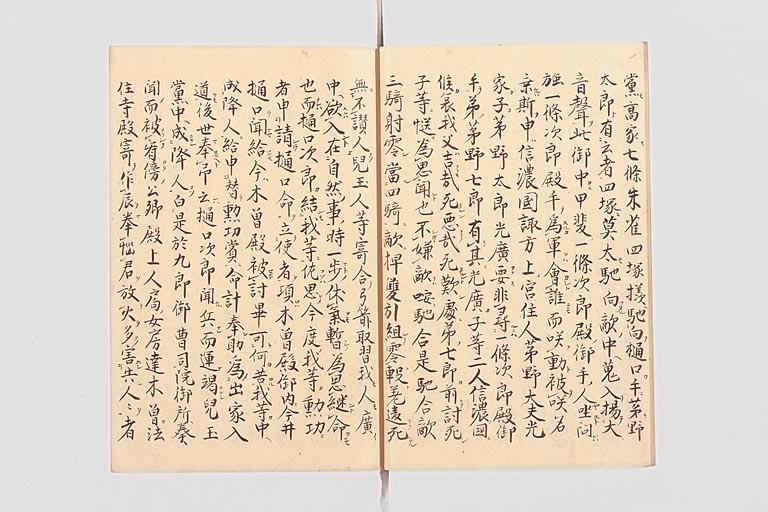 黨高家七條朱雀四塚樣馳向樋口手茅野
太郎有云者四塚莫太馳向敵中蒐入揚大
音聲此御中甲斐一條次郎殿御手人坐問
強一條次郎殿手為軍會誰而咲動被咲名
乗斯申信濃國諏方上宮住人茅野大夫光
家子茅野太郎光廣要非尋一條次郎殿御
手弟茅野七郎有其光廣子等二人信濃國
候哀我父吉哉死悪哉死歎處弟七郎前討死
子等慥為思聞也不嫌敵唉馳合是馳合敵
三騎射零當四騎敵押雙引組零轂差違死
無不讃人兒玉人等寄合弓箭取習我人廣
中欲入在自然事時一歩休氣暫為思継命
也而樋口次郎結我等侘思今度我等勳功
者申請樋口命立使者項木曽殿御内今井
樋口聞給今木曽殿被討畢可何苦我等中
成降人給申替勳功賞命計奉助為出家入
道後世奉弔云樋口次郎聞兵而運竭兒玉
黨中成降人白是於九郎御曹司院御所奏
聞而被宥傍公卿殿上人局女房達木曽法
住寺殿寄作辰奉悩君放火多害共人者